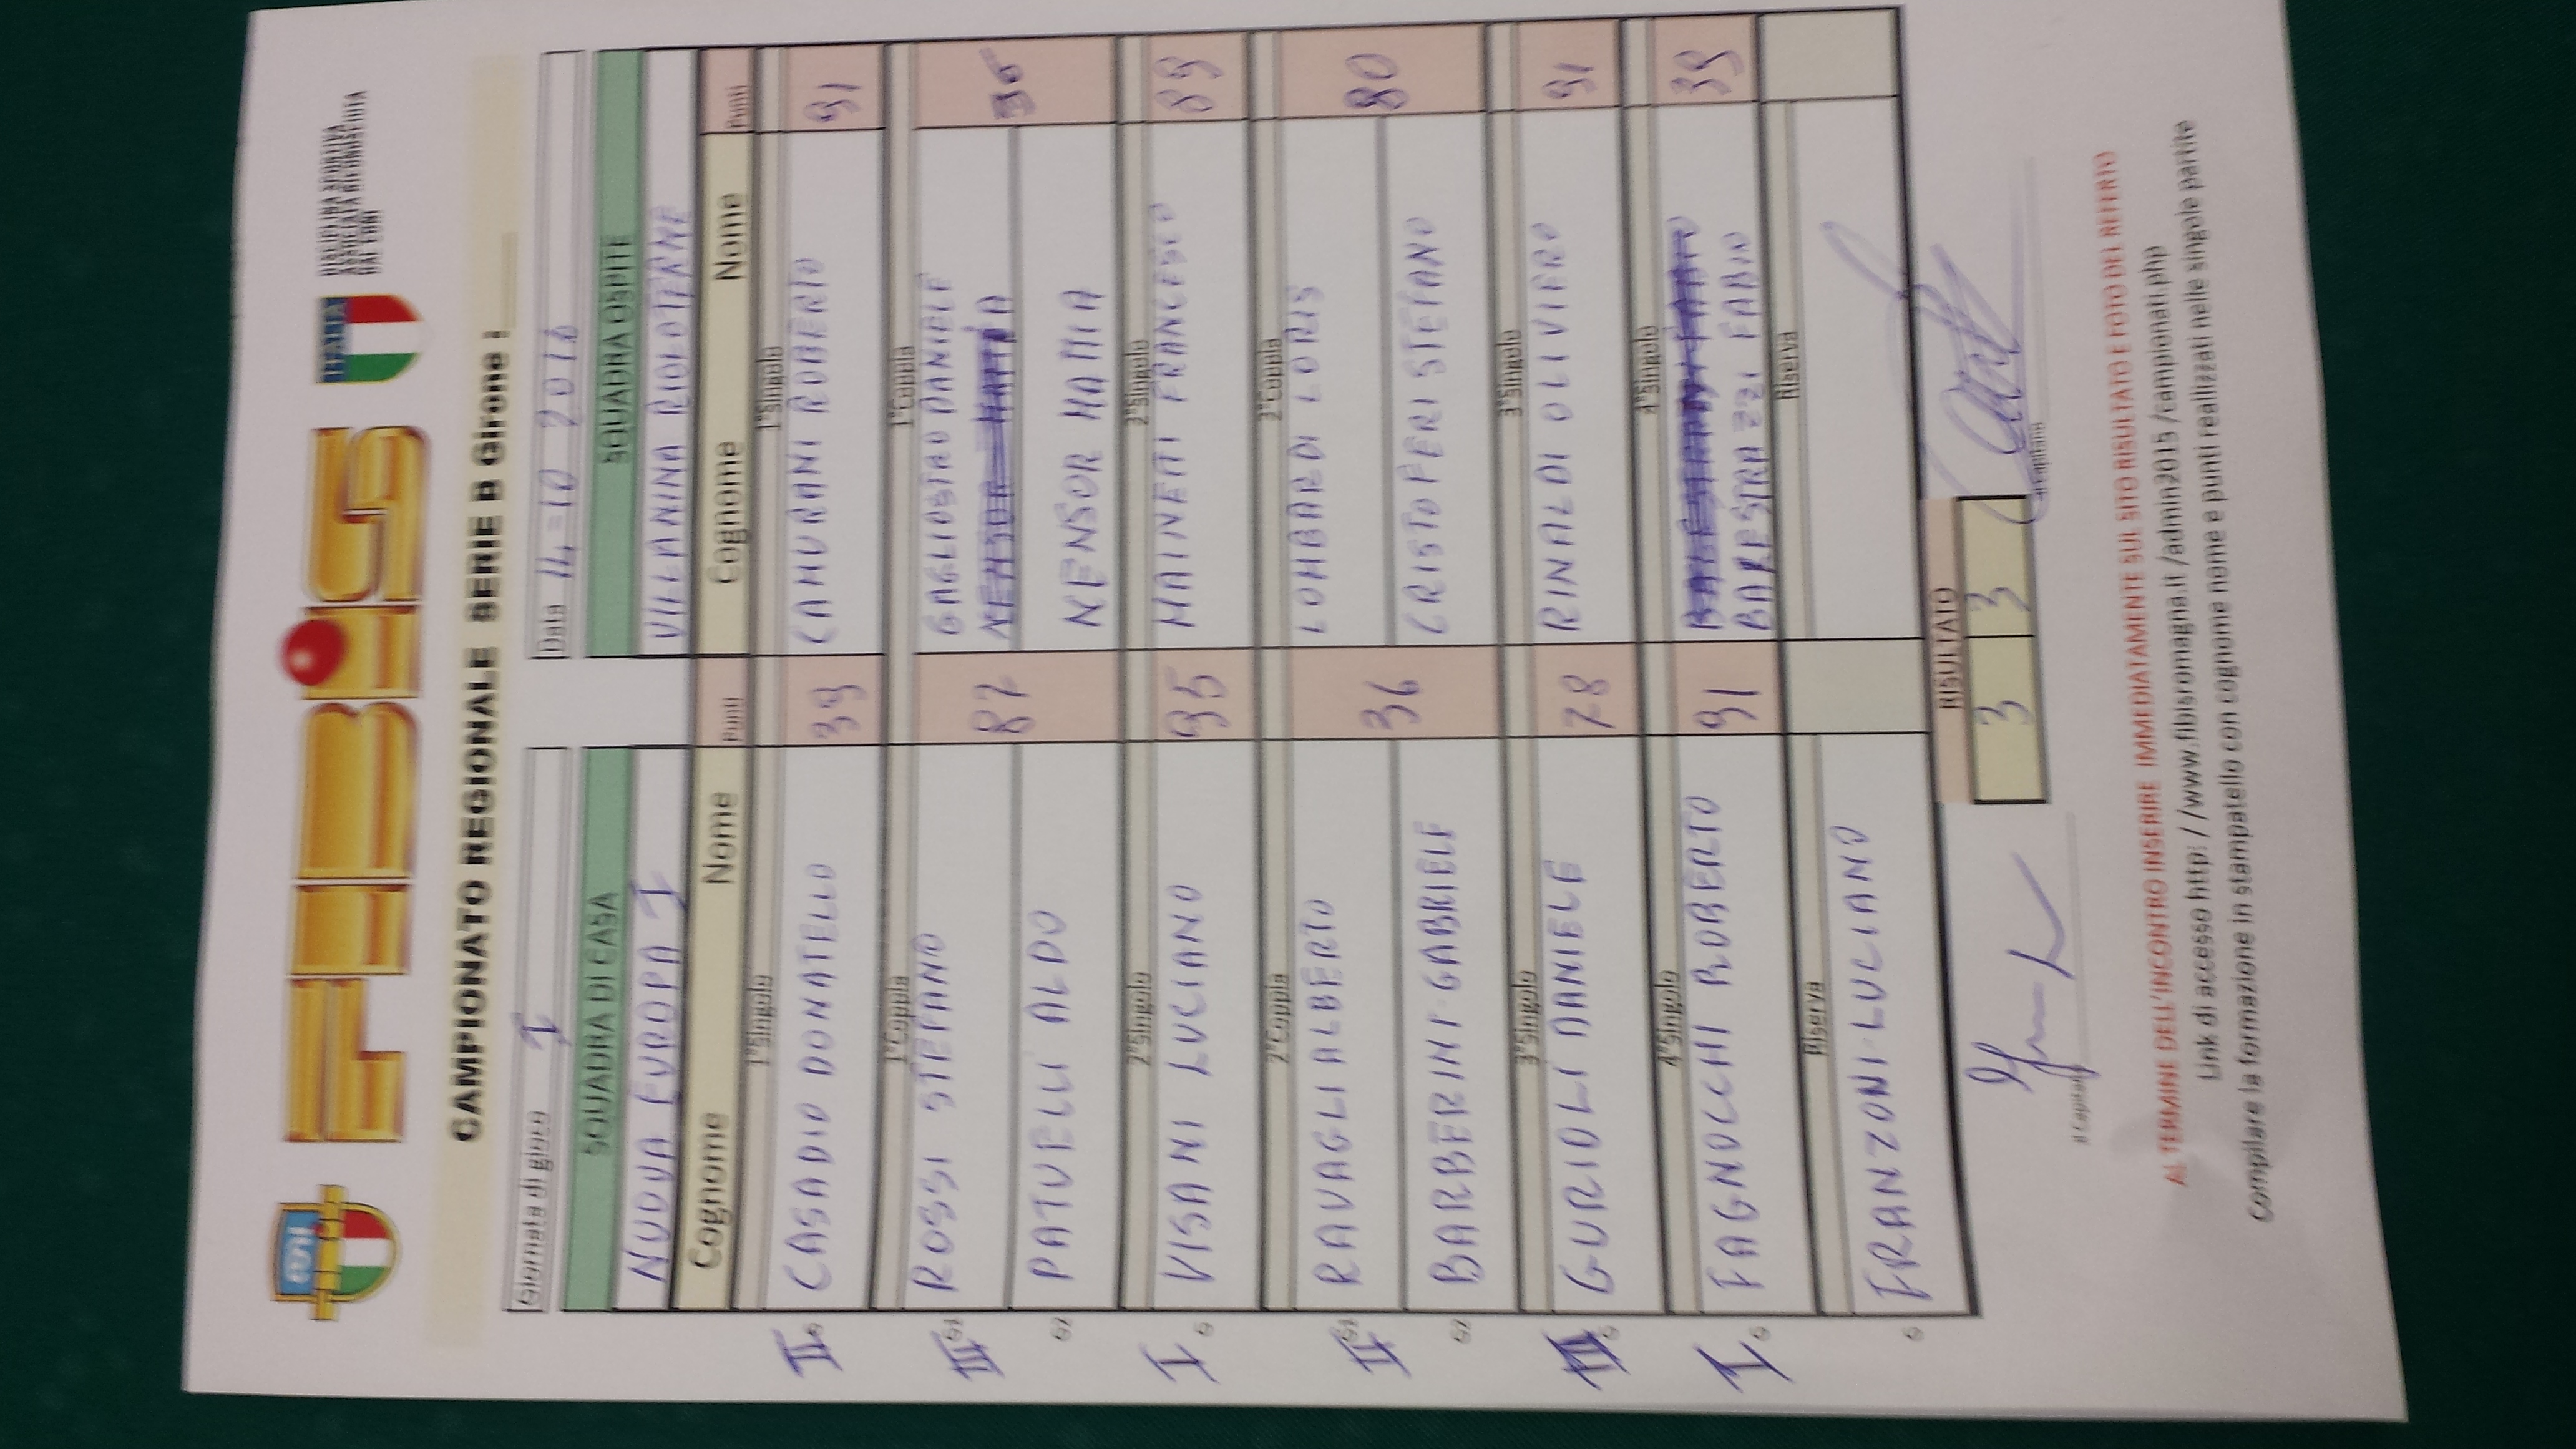 eni
FIBiS
ITALIA
DISCIPLINA SPORTIVA
ASSOCIATA RICONOSCIUTA
DAL CONI
CAMPIONATO REGIONALE SERIE B Girone :
Giornata di gioco I
Data 14=10 2016
SQUADRA DI CASA SQUADRA OSPITE
NUOVA EUROPA I VILLANINA RIOLOTERME
Cognome Nome Punti Cognome Nome Punti
1°Singolo 1°Singolo
II G CASADIO DONATELLO 39 CAMURANI ROBERTO 91
1°Coppia 1°Coppia
III G1 ROSSI STEFANO 87 GAGLIOSTRO DANIELE
G2 PATUELLI ALDO NENSOR MATTIA
2°Singolo 2°Singolo
I G VISANI LUCIANO 95 MAINETTI FRANCESCO 89
2°Coppia 2°Coppia
II G1 RAVAGLI ALBERTO 36 LOMBARDI LORIS 80
G2 BARBERINI GABRIELE CRISTOFERI STEFANO
3°Singolo 3°Singolo
III G GURIOLI DANIELE 78 RINALDI OLIVIERO 91
4°Singolo 4°Singolo
I G FAGNOCCHI ROBERTO 91 BALESTRAZZI FABIO 39
BARESTRAZZI FABIO
Riserva Riserva
G FRANZONI LUCIANO
RISULTATO
3 3
Il Capitano Il Capitano
AL TERMINE DELL'INCONTRO INSERIRE IMMEDIATAMENTE SUL SITO RISULTATO E FOTO DEL REFERTO
Link di accesso http: / /www.fibisromagna.it /admin2015 /campionati.php
Compilare la formazione in stampatello con cognome nome e punti realizzati nelle singole partite